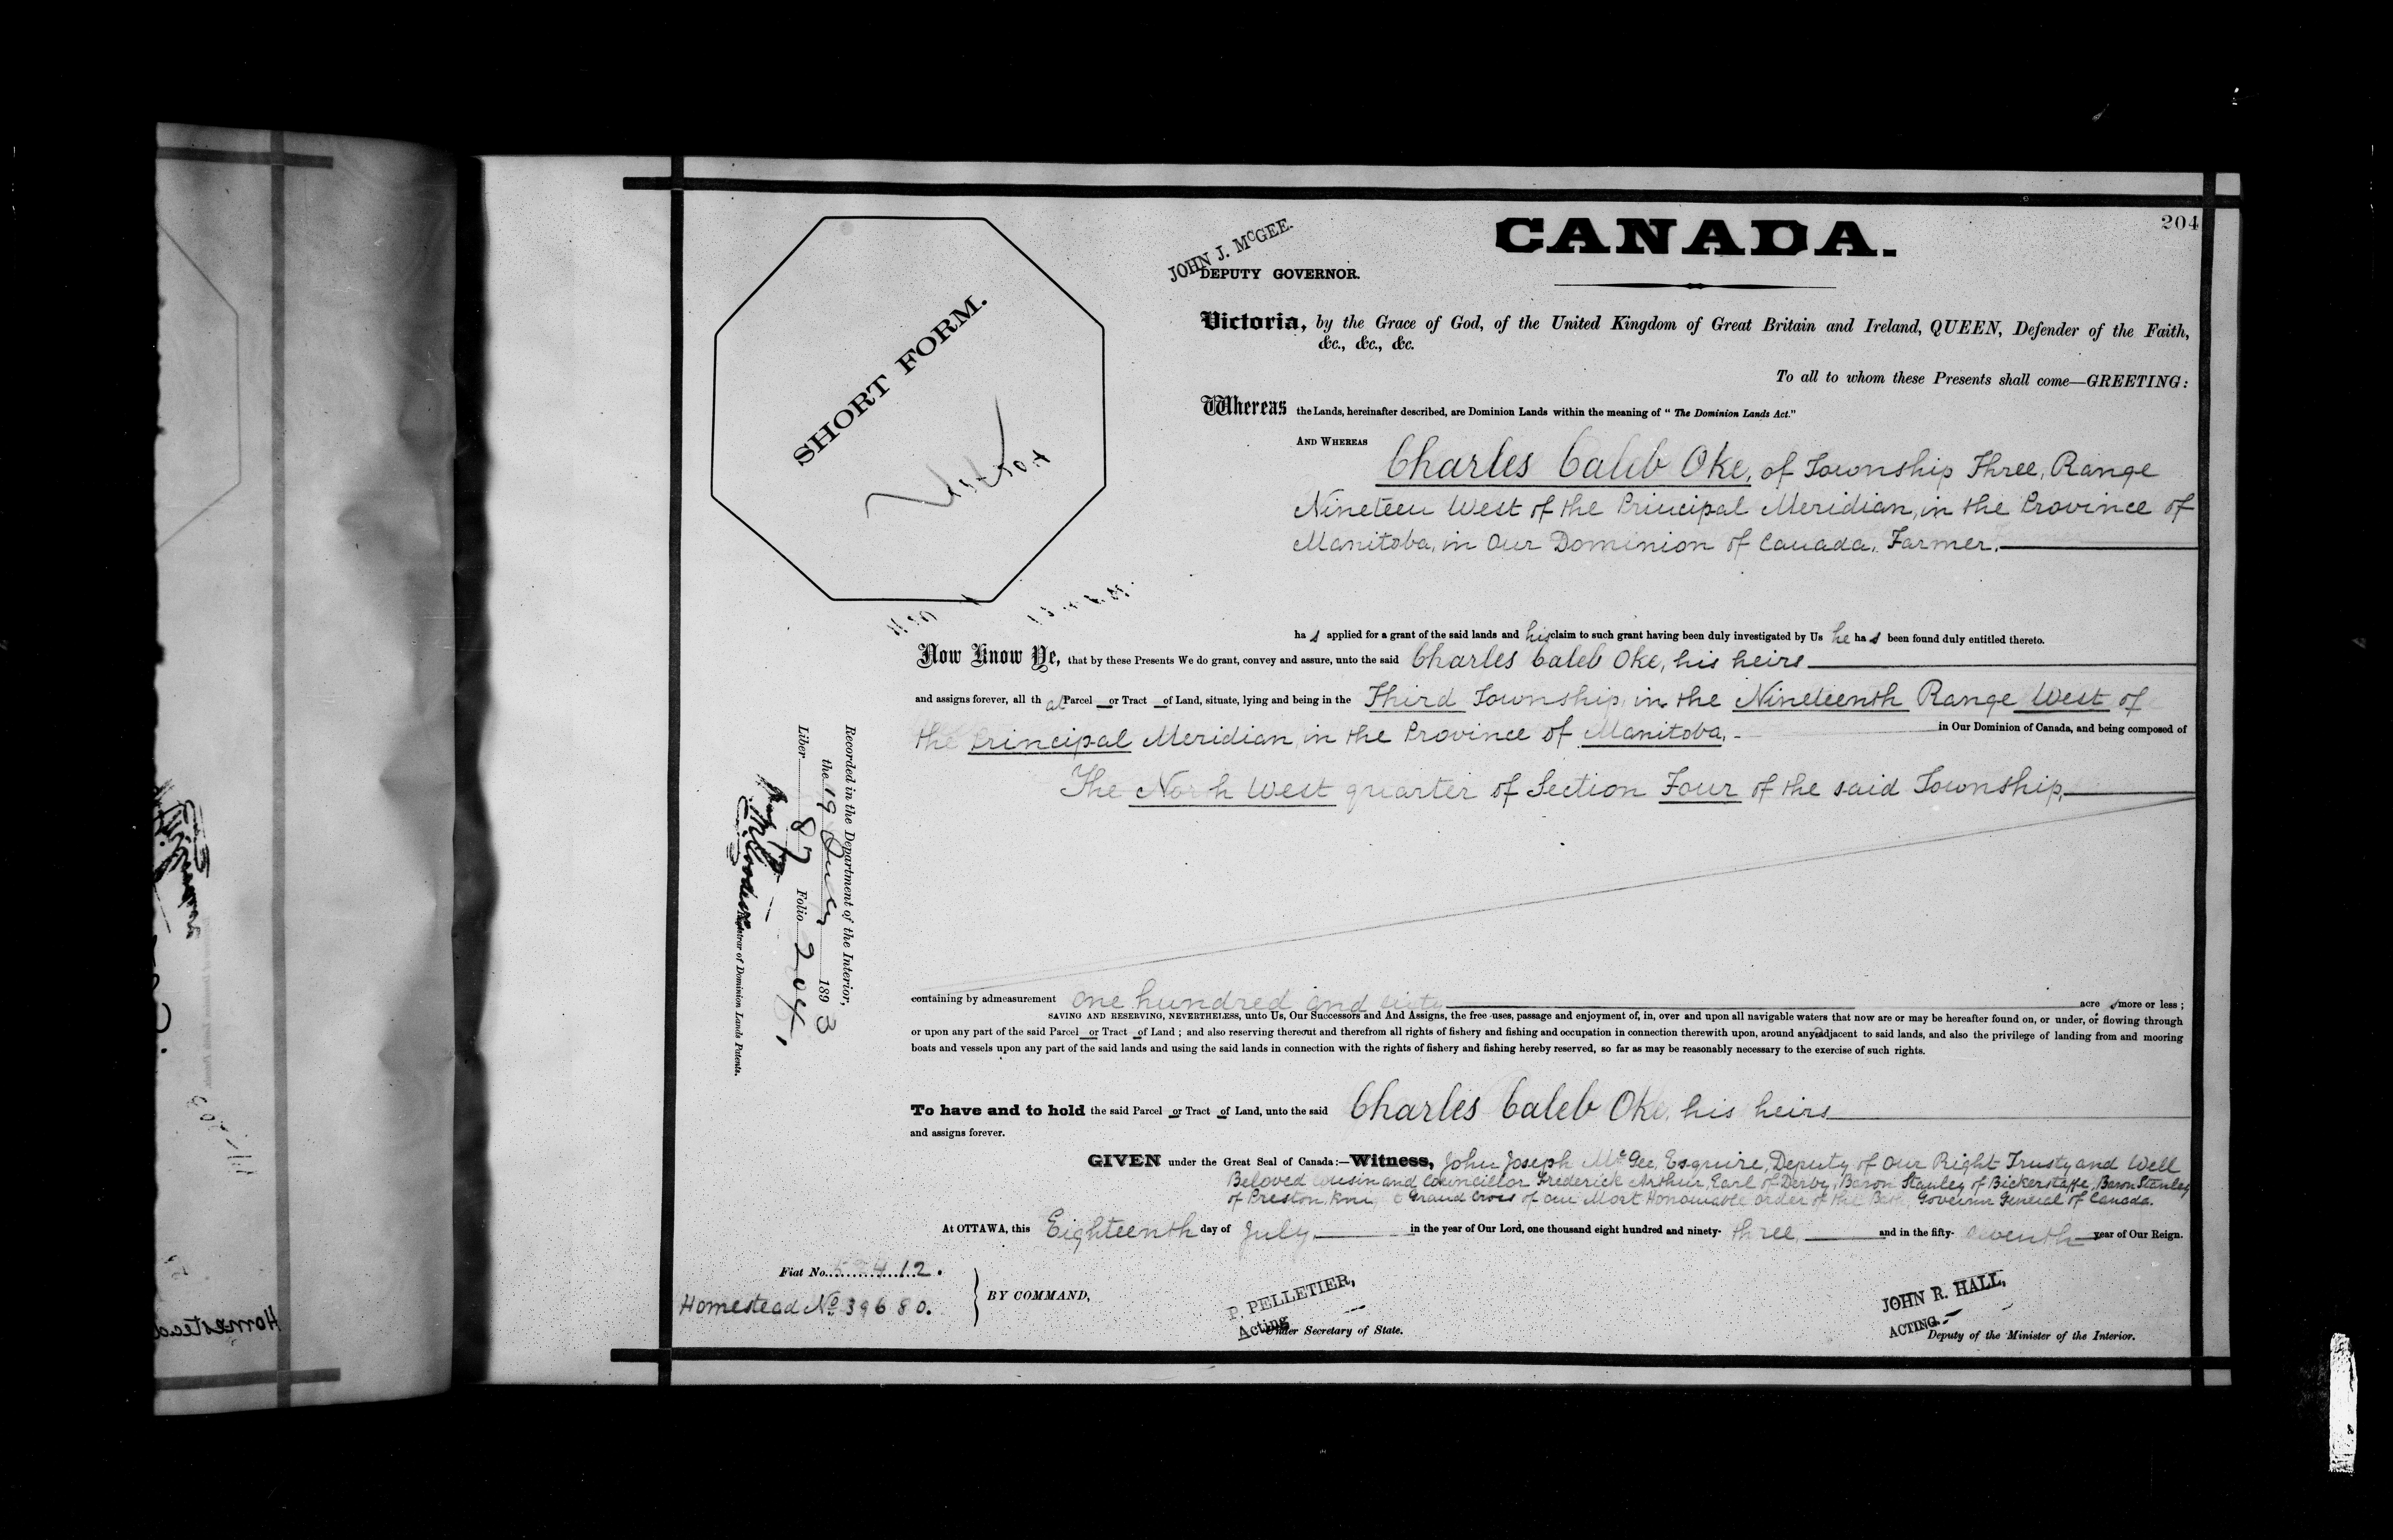 204
CANADA.
JOHN J. McGEE.
DEPUTY GOVERNOR.
SHORT FORM.
Victoria, by the Grace of God, of the United Kingdom of Great Britain and Ireland, QUEEN, Defender of the Faith,
&c., &c., &c.
To all to whom these Presents shall come—GREETING:
Whereas the Lands, hereinafter described, are Dominion Lands within the meaning of "The Dominion Lands Act."
AND WHEREAS Charles Caleb Oke, of Township Three, Range
Nineteen West of the Principal Meridian, in the Province of
Manitoba, in Our Dominion of Canada, Farmer.
has applied for a grant of the said lands and his claim to such grant having been duly investigated by Us he has been found duly entitled thereto.
Now Know Ye, that by these Presents We do grant, convey and assure, unto the said Charles Caleb Oke, his heirs
and assigns forever, all that Parcel or Tract of Land, situate, lying and being in the Third Township, in the Nineteenth Range West of
the Principal Meridian, in the Province of Manitoba, in Our Dominion of Canada, and being composed of
The North West quarter of Section Four of the said Township.
Recorded in the Department of the Interior,
the 19 July 1893
Liber 87 Folio 204.
Registrar of Dominion Lands Patents.
containing by admeasurement one hundred and sixty acres more or less;
SAVING AND RESERVING, NEVERTHELESS, unto Us, Our Successors and And Assigns, the free uses, passage and enjoyment of, in, over and upon all navigable waters that now are or may be hereafter found on, or under, or flowing through
or upon any part of the said Parcel or Tract of Land; and also reserving thereout and therefrom all rights of fishery and fishing and occupation in connection therewith upon, around any adjacent to said lands, and also the privilege of landing from and mooring
boats and vessels upon any part of the said lands and using the said lands in connection with the rights of fishery and fishing hereby reserved, so far as may be reasonably necessary to the exercise of such rights.
To have and to hold the said Parcel or Tract of Land, unto the said Charles Caleb Oke, his heirs
and assigns forever.
GIVEN under the Great Seal of Canada:—Witness, John Joseph McGee, Esquire, Deputy of Our Right Trusty and Well
Beloved Cousin and Councillor Frederick Arthur, Earl of Derby, Baron Stanley of Bickerstaffe, Baron Stanley
of Preston, Knight Grand Cross of our Most Honourable Order of the Bath, Governor General of Canada.
At OTTAWA, this Eighteenth day of July in the year of Our Lord, one thousand eight hundred and ninety-three, and in the fifty-seventh year of Our Reign.
Fiat No. 412.
Homestead No. 39680.
BY COMMAND,
P. PELLETIER,
Acting Under Secretary of State.
JOHN R. HALL,
ACTING Deputy of the Minister of the Interior.